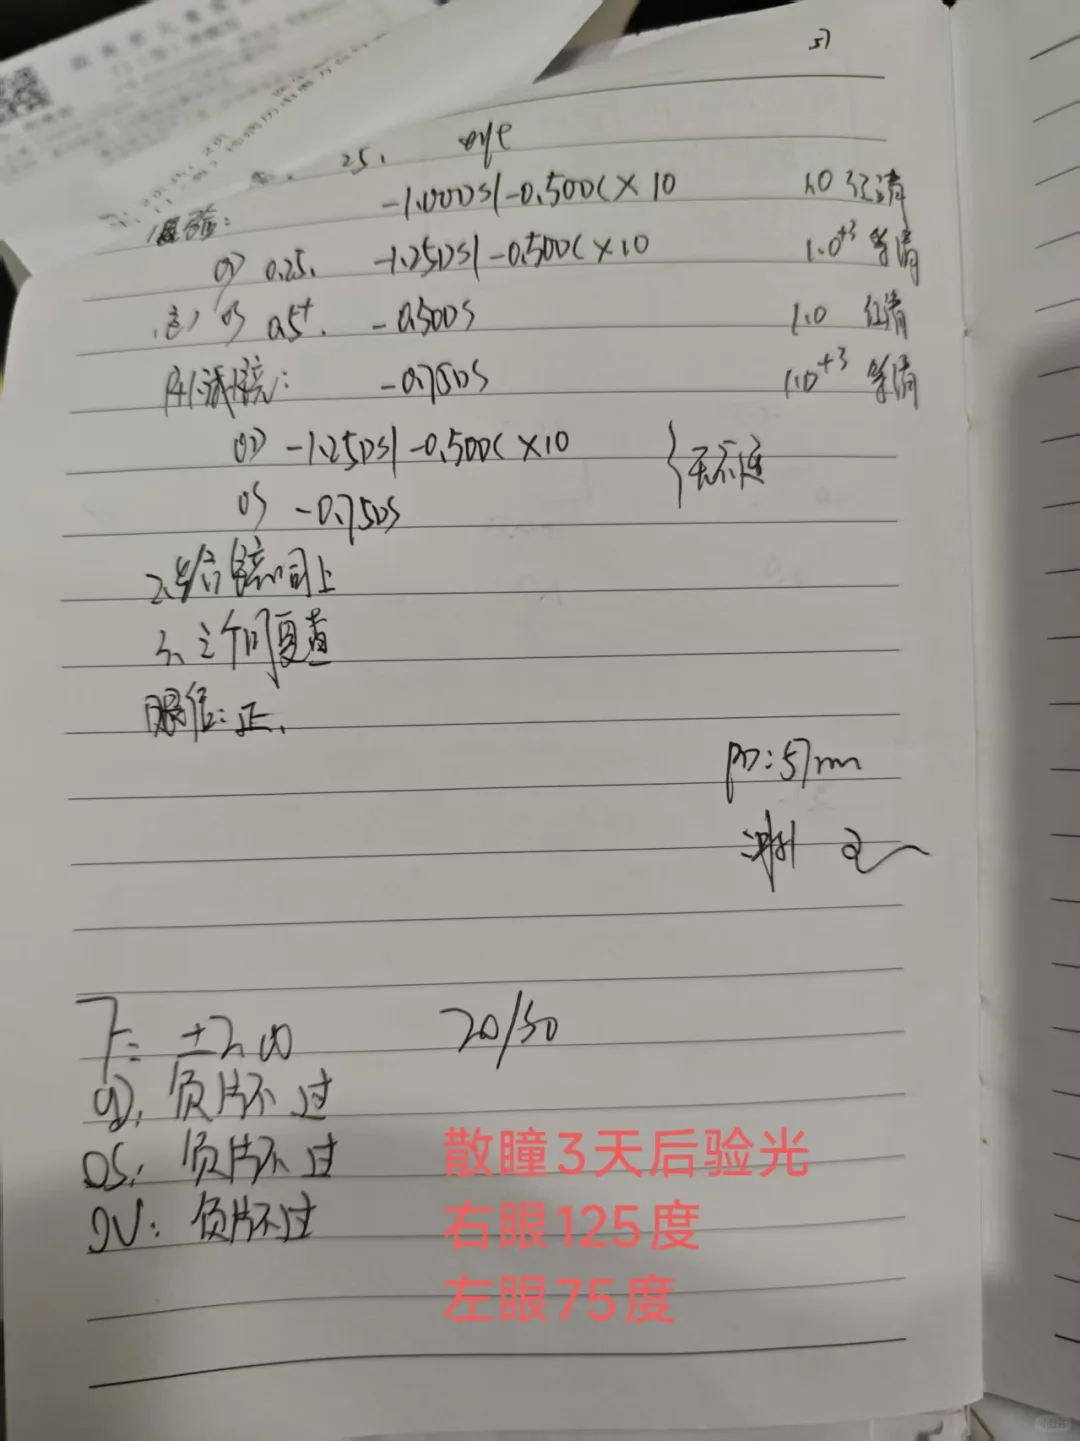 57
25. eye
复验: -1.00DS/-0.50DC×10 1.0 红清
OD 0.25. -1.25DS/-0.50DC×10 1.0+3 等清
OS 0.5+. -0.50DS 1.0 红清
试镜: -0.75DS 1.0+3 等清
OD -1.25DS/-0.50DC×10
无不适
OS -0.75DS
2、给镜同上
3、三个月复查
眼位: 正.
PD: 57mm
谢
±2.00 20/30
OD. 负片不过
OS: 负片不过
OU: 负片不过
散瞳3天后验光
右眼125度
左眼75度